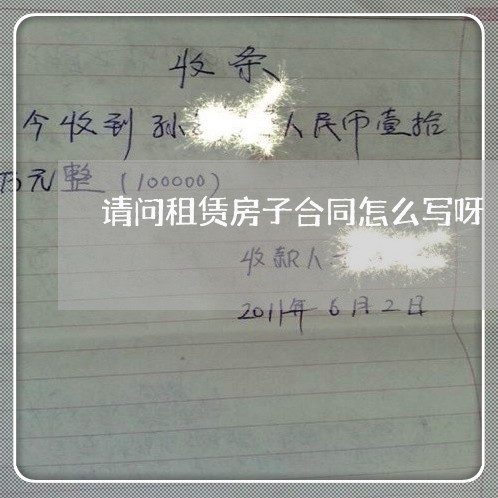 收条
今收到孙 人民币壹拾
万元整（100000）
请问租赁房子合同怎么写呀
收款人
2011年6月2日